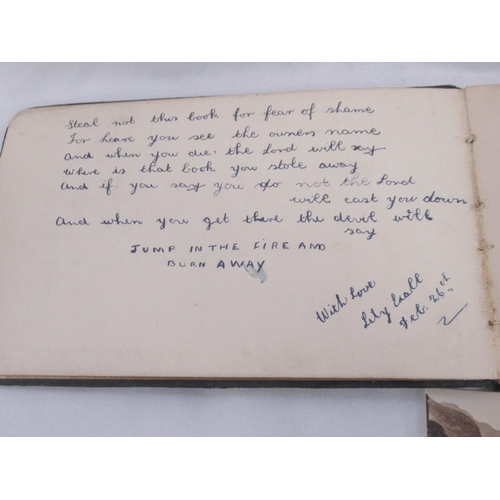 Steal not this book for fear of shame
For heare you see the owners name
and when you die the Lord will say
where is that book you stole away
and if you say you do not the Lord
will cast you down
And when you get there the devil will
say
JUMP IN THE FIRE AND
BURN AWAY
With Love
Lily
Feb. 26th